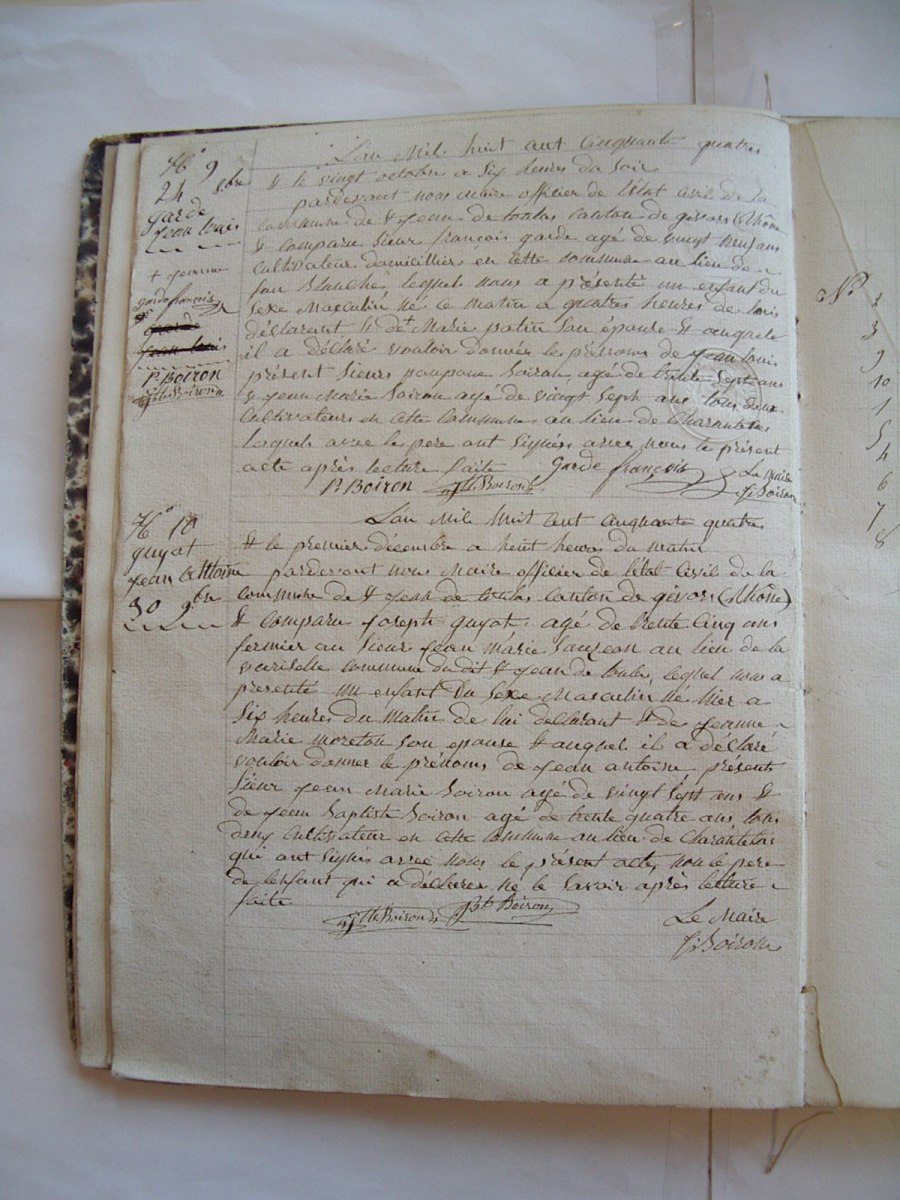 N° 9
24 8bre
garde
jean louis
+ jeanne
garde françois
garde
jean louis
P. Boiron
J M Boiron
L'an Mil huit cent Cinquante quatre
& le vingt octobre a Six heures du Soir
pardevant nous Maire officier de l'état civil de la
commune de St jean de toulas canton de givors (Rhône
& comparu Sieur françois garde agé de vingt neuf ans
Cultivateur domicillier en cette commune au lieu de
fon blanche, lequel nous a présenté un enfant du
Sexe Masculin né ce matin a quatre heures de lui
déclarant & de + Marie patin Son épouse & auquel
il a déclaré vouloir donner les prénoms de jean louis
présent Sieurs Boiron, agé de trente Sept ans
& jean Marie Boiron agé de vingt Sept ans tous deux
Cultivateurs en cette Commune au lieu de Charantelas
laquels avec le pere ont Signés avec nous le présent
acte après lecture faite Garde françois Le Maire
P. Boiron J M Boiron J. Boiron
N° 10
guyot
jean Antoine
30 9bre
L'an Mil huit cent cinquante quatre
& le premier décembre a heut heures du matin
pardevant nous Maire officier de l'état Civil de la
commune de St jean de toulas canton de givors (Rhône)
& comparu joseph guyot agé de trente Cinq ans
fermier au Sieur jean marie Sauzeon au lieu de la
commune du dit St jean de toulas, lequel nous a
présenté un enfant du Sexe Masculin né hier a
Six heures du Matin de lui déclarant & de jeanne
Marie moreton son épouse & auquel il a déclaré
vouloir donner le prénoms de jean antoine présents
Sieur jean Marie Boiron agé de vingt Sept ans &
de jean Baptiste Boiron agé de trente quatre ans tous
deux Cultivateur en cette Commune au lieu de Charantelas
qui ont Signés avec nous le présent acte, non le pere
de l'enfant qui a déclarer ne le Savoir après lecture
faite
J M Boiron J B Boiron Le Maire
J. Boiron
N° 2
3
9
10
1
5
4
6
7
8